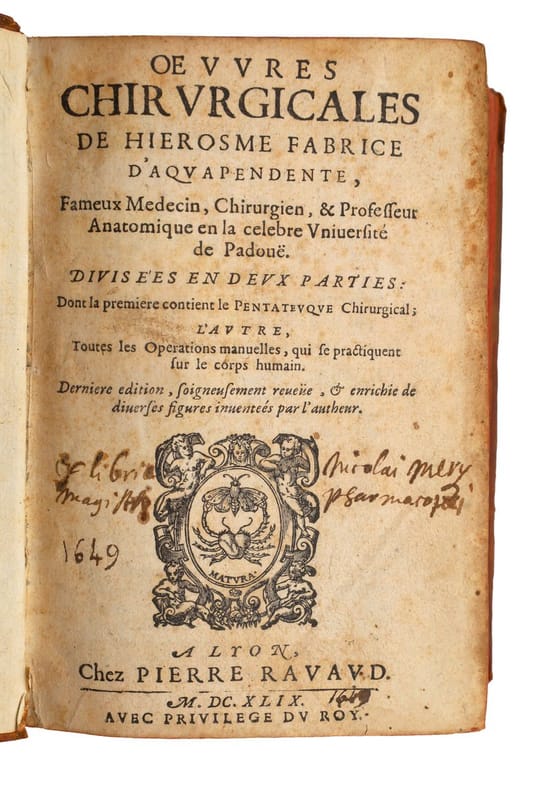 OEVVRES
CHIRVRGICALES
DE HIEROSME FABRICE
D'AQVAPENDENTE,
Fameux Medecin, Chirurgien, & Professeur
Anatomique en la celebre Vniuersité
de Padouë.
DIVISEES EN DEVX PARTIES:
Dont la premiere contient le PENTATEVQVE Chirurgical;
L'AVTRE,
Toutes les Operations manuelles, qui se practiquent
sur le corps humain.
Derniere edition, soigneusement reueüe, & enrichie de
diuerses figures inuentées par l'autheur.
Ex libris Nicolai Mery
magistri pharmacopei
1649
MATVRA
A LYON,
Chez PIERRE RAVAVD.
M. DC. XLIX. 1649
AVEC PRIVILEGE DV ROY.